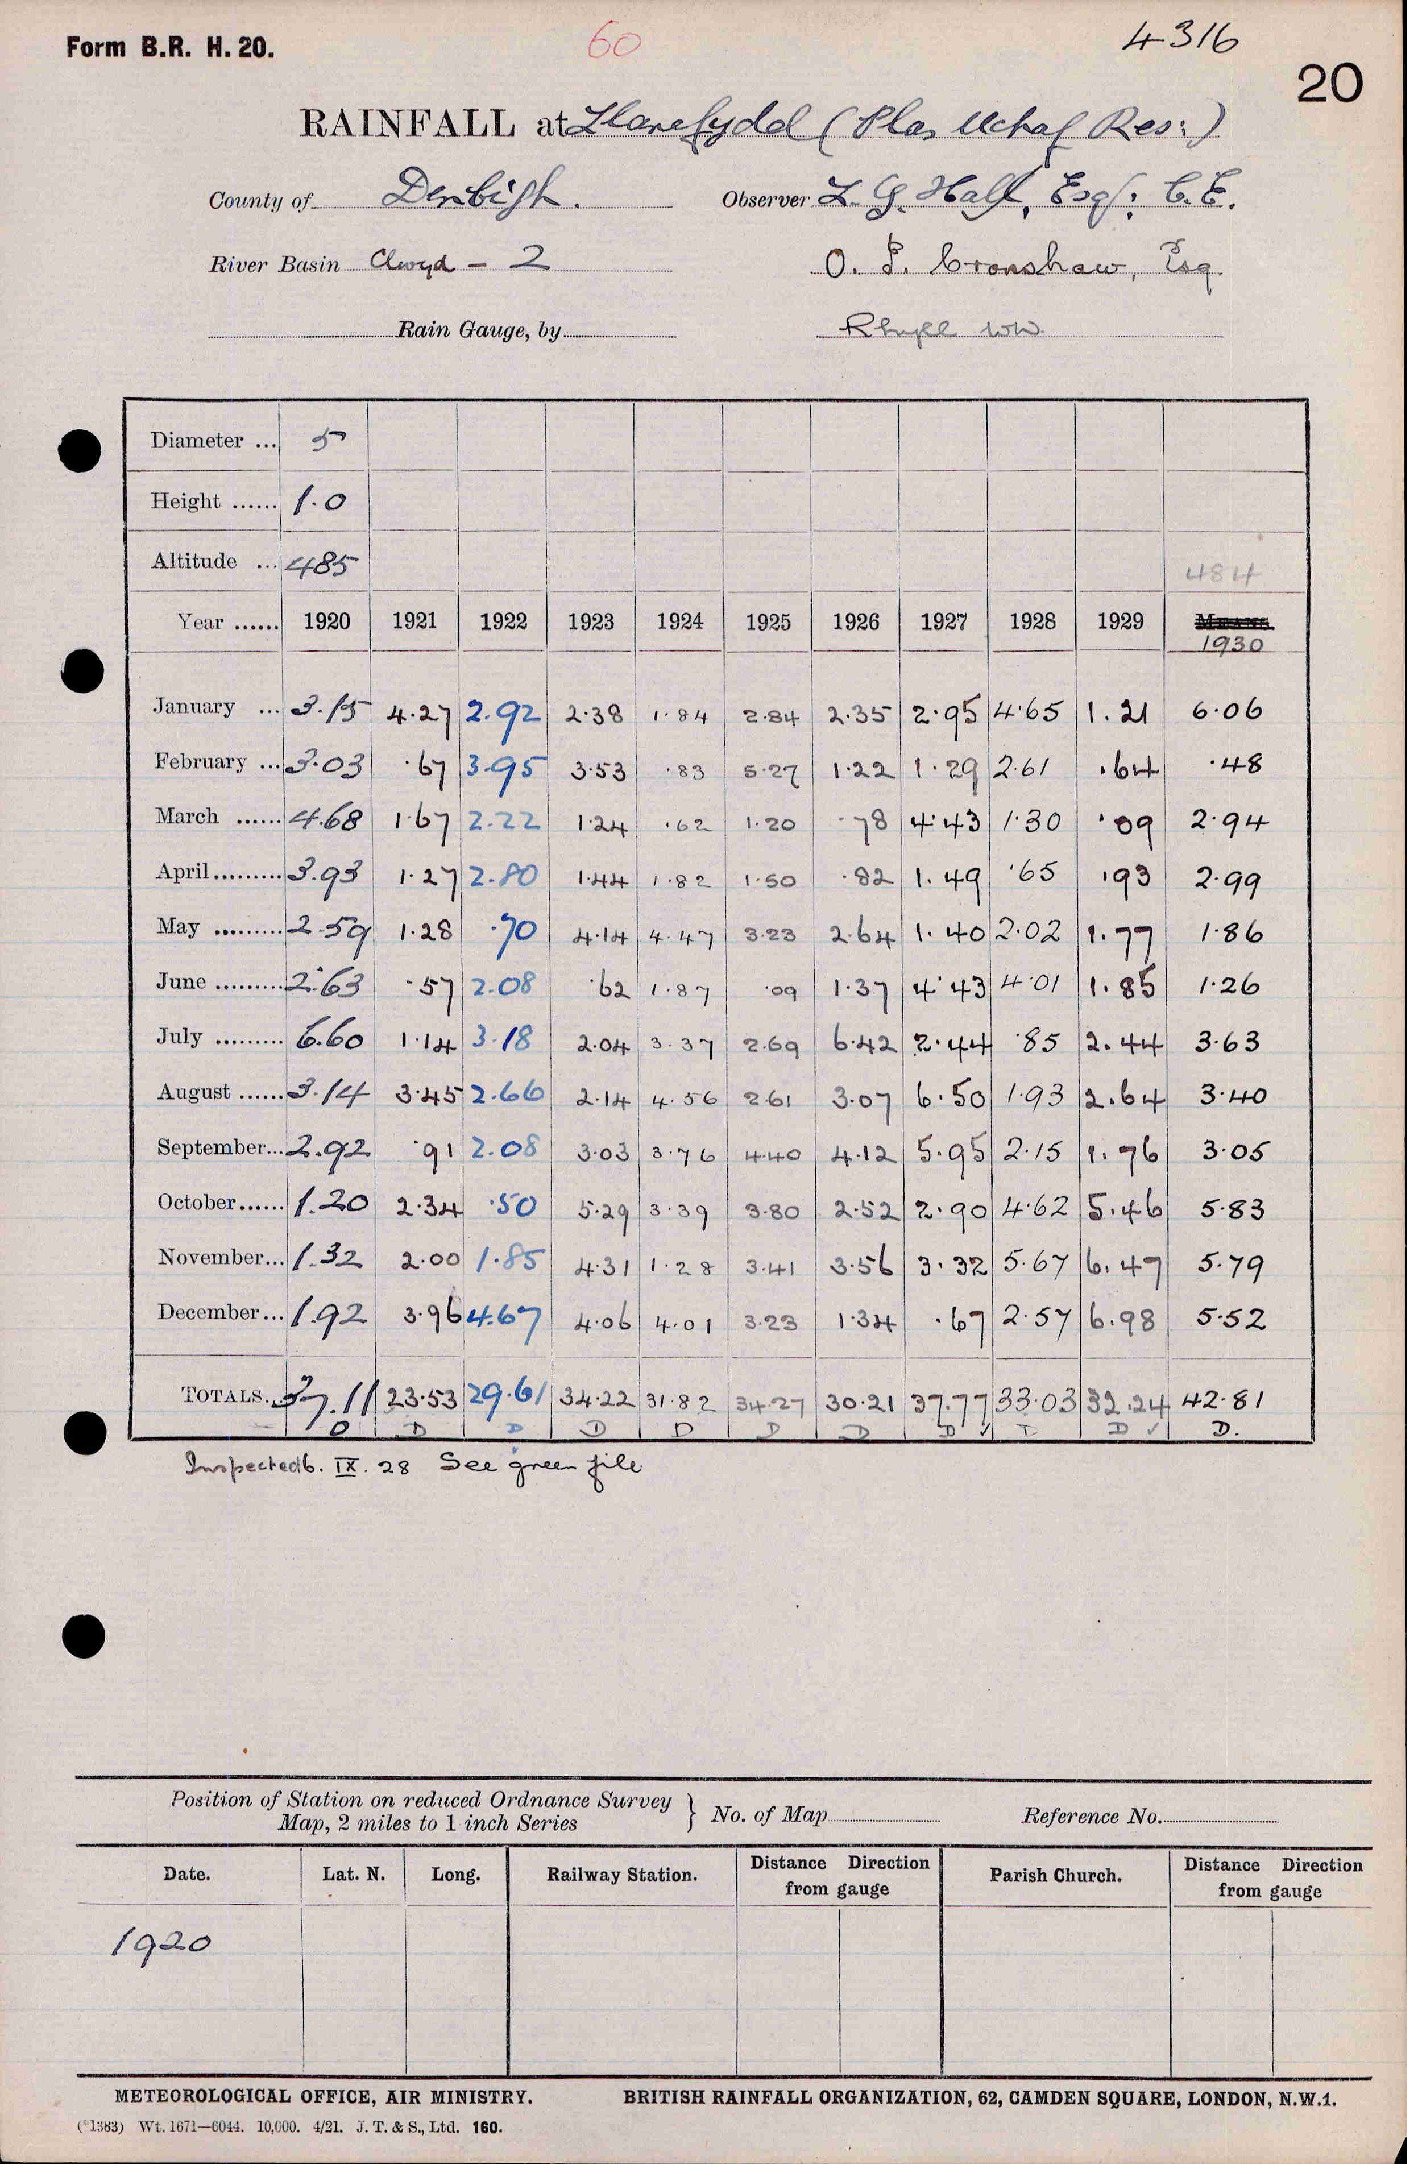 Form B.R. H. 20.
60
4316
20
RAINFALL at Llanefydd (Plas Uchaf Res:)
County of Denbigh. Observer L. G. Hall, Esq: C.E.
River Basin Clwyd - 2 O. L. Cronshaw, Esq
Rain Gauge, by Rhyll WW.
Diameter ... 5
Height ...... 1.0
Altitude ... 485 484
Year ...... 1920 1921 1922 1923 1924 1925 1926 1927 1928 1929 MEANS. 1930
January ... 3.15 4.27 2.92 2.38 1.84 2.84 2.35 2.95 4.65 1.21 6.06
February ... 3.03 .67 3.95 3.53 .83 5.27 1.22 1.29 2.61 .64 .48
March ...... 4.68 1.67 2.22 1.24 .62 1.20 .78 4.43 1.30 .09 2.94
April ......... 3.93 1.27 2.80 1.44 1.82 1.50 .82 1.49 .65 .93 2.99
May ......... 2.59 1.28 .70 4.14 4.47 3.23 2.64 1.40 2.02 1.77 1.86
June ......... 2.63 .57 2.08 .62 1.87 .09 1.37 4.43 4.01 1.85 1.26
July ......... 6.60 1.14 3.18 2.04 3.37 2.69 6.42 2.44 .85 2.44 3.63
August ...... 3.14 3.45 2.66 2.14 4.56 2.61 3.07 6.50 1.93 2.64 3.40
September... 2.92 .91 2.08 3.03 3.76 4.40 4.12 5.95 2.15 1.76 3.05
October...... 1.20 2.34 .50 5.29 3.39 3.80 2.52 2.90 4.62 5.46 5.83
November... 1.32 2.00 1.85 4.31 1.28 3.41 3.56 3.32 5.67 6.47 5.79
December... 1.92 3.96 4.67 4.06 4.01 3.23 1.34 .67 2.57 6.98 5.52
TOTALS... 37.11 23.53 29.61 34.22 31.82 34.27 30.21 37.77 33.03 32.24 42.81
D D D D D D D D ✓ D ✓ D.
Inspected 6. IX. 28 See green file
Position of Station on reduced Ordnance Survey
Map, 2 miles to 1 inch Series } No. of Map Reference No.
Date. Lat. N. Long. Railway Station. Distance Direction from gauge Parish Church. Distance Direction from gauge
1920
METEOROLOGICAL OFFICE, AIR MINISTRY. BRITISH RAINFALL ORGANIZATION, 62, CAMDEN SQUARE, LONDON, N.W.1.
(*1383) Wt. 1671—6044. 10,000. 4/21. J. T. & S., Ltd. 160.